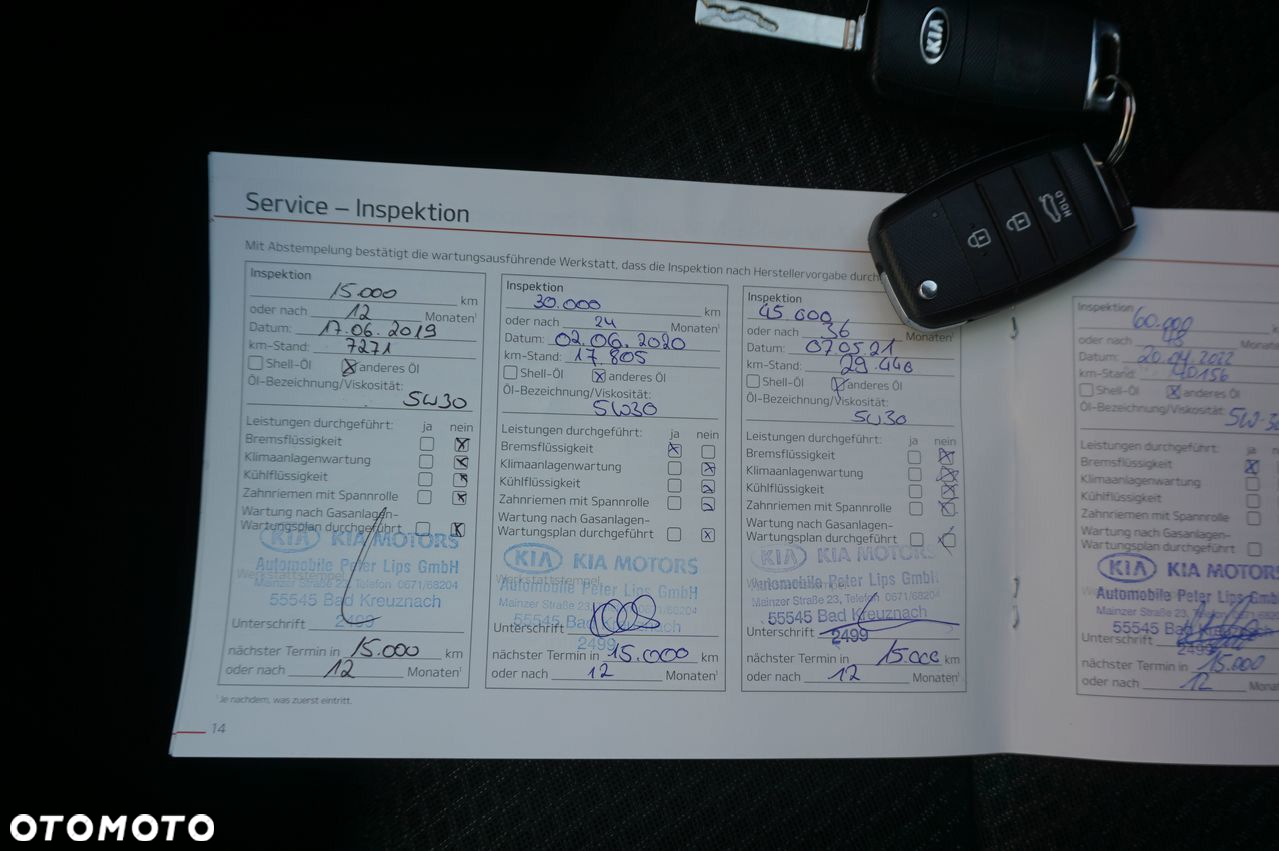 KIA
HOLD
Service – Inspektion
Mit Abstempelung bestätigt die wartungsausführende Werkstatt, dass die Inspektion nach Herstellervorgabe durch
Inspektion
15.000 km
oder nach 12 Monaten¹
Datum: 17.06.2019
km-Stand: 7271
Shell-Öl anderes Öl
Öl-Bezeichnung/Viskosität:
5W30
Leistungen durchgeführt: ja nein
Bremsflüssigkeit
Klimaanlagenwartung
Kühlflüssigkeit
Zahnriemen mit Spannrolle
Wartung nach Gasanlagen-
Wartungsplan durchgeführt
KIA KIA MOTORS
Automobile Peter Lips GmbH
Werkstattstempel
Mainzer Straße 23, Telefon 0671/68204
55545 Bad Kreuznach
Unterschrift 2499
nächster Termin in 15.000 km
oder nach 12 Monaten¹
Inspektion
30.000 km
oder nach 24 Monaten¹
Datum: 02.06.2020
km-Stand: 17.805
Shell-Öl anderes Öl
Öl-Bezeichnung/Viskosität:
5W30
Leistungen durchgeführt: ja nein
Bremsflüssigkeit
Klimaanlagenwartung
Kühlflüssigkeit
Zahnriemen mit Spannrolle
Wartung nach Gasanlagen-
Wartungsplan durchgeführt
KIA KIA MOTORS
Werkstattstempel
Automobile Peter Lips GmbH
Mainzer Straße 23, Telefon 0671/68204
55545 Bad Kreuznach
Unterschrift
2499
nächster Termin in 15.000 km
oder nach 12 Monaten¹
Inspektion
45.000 km
oder nach 36 Monaten¹
Datum: 07.05.21
km-Stand: 29.446
Shell-Öl anderes Öl
Öl-Bezeichnung/Viskosität:
5W30
Leistungen durchgeführt: ja nein
Bremsflüssigkeit
Klimaanlagenwartung
Kühlflüssigkeit
Zahnriemen mit Spannrolle
Wartung nach Gasanlagen-
Wartungsplan durchgeführt
KIA KIA MOTORS
Automobile Peter Lips GmbH
Mainzer Straße 23, Telefon 0671/68204
55545 Bad Kreuznach
Unterschrift 2499
nächster Termin in 15.000 km
oder nach 12 Monaten¹
Inspektion
60.000
oder nach 48 Monate
Datum: 20.04.2022
km-Stand: 40156
Shell-Öl anderes Öl
Öl-Bezeichnung/Viskosität:
5W-30
Leistungen durchgeführt: ja
Bremsflüssigkeit
Klimaanlagenwartung
Kühlflüssigkeit
Zahnriemen mit Spannrolle
Wartung nach Gasanlagen-
Wartungsplan durchgeführt
KIA KIA MOTORS
Automobile Peter Lips Gmb
Mainzer Straße 23, Telefon 0671/682
55545 Bad Kreuznac
Unterschrift 2499
nächster Termin in 15.000
oder nach 12 Mona
¹Je nachdem, was zuerst eintritt.
14
OTOMOTO